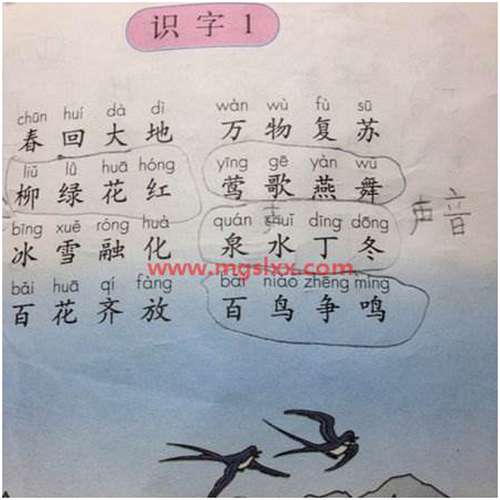 识字1
chūn huí dà dì wàn wù fù sū
春回大地 万物复苏
liǔ lǜ huā hóng yīng gē yàn wǔ
柳绿花红 莺歌燕舞
bīng xuě róng huà quán shuǐ dīng dōng
冰雪融化 泉水丁冬 声音
www.mgslxx.com
bǎi huā qí fàng bǎi niǎo zhēng míng
百花齐放 百鸟争鸣